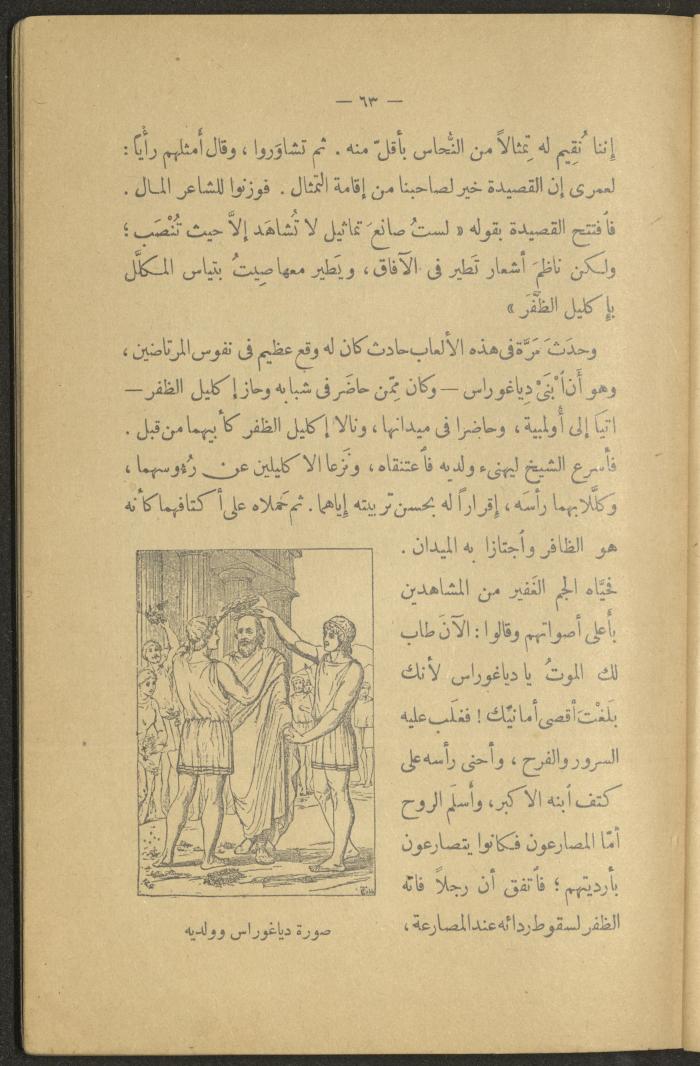 — ٦٣ —
إننا نُقِيم له تِمثالاً من النُّحاس بأقلّ منه . ثم تشاوَروا ، وقال أَمثلهم رأْيًا :
لعمرى إن القصيدة خير لصاحبنا من إقامة التمثال . فوزنوا للشاعر المال .
فٱفتتح القصيدة بقوله « لستُ صانعَ تماثيل لا تُشاهَد إلاَّ حيث تُنْصَب ؛
ولكن ناظمَ أشعار تَطير فى الآفاق ، ويَطير معها صِيتُ بتياس المكلَّل
بإِكليل الظَّفَر »
وحدَث مَرَّة فى هذه الألعاب حادث كان له وقع عظيم فى نفوس المرتاضين ،
وهو أَنّ ٱبْنَىْ دِياغوراس — وكان مِمّن حاضَر فى شبابه وحاز إكليل الظفر —
اتيَا إلى أُولمبية ، وحاضرا فى ميدانها ، ونالا إكليل الظفر كأبيهما من قبل .
فأسرع الشيخ ليهنىء ولديه فٱعتنقاه ، ونَزعا الاكليلين عن رُءوسهما ،
وكلَّلا بهما رأسَه ، إقراراً له بحسن تربيته إياهما . ثم حَملاه على أكتافهما كأنه
هو الظافر وٱجتازا به الميدان .
فحيَّاه الجم الغَفير من المشاهدين
بأَعلى أصواتهم وقالوا : الآنَ طاب
لك الموتُ يا دياغوراس لأنك
بلَغْتَ أقصى أمانيّك ! فغلَب عليه
السرور والفرح ، وأحنى رأسه على
كتف ٱبنه الأكبر ، وأَسلَم الروح
أمّا المصارعون فكانوا يتصارعون
بأرديتهم ؛ فٱتفق أن رجلاً فاته
الظفر لسقوط ردائه عند المصارعة ،
صورة دياغوراس وولديه